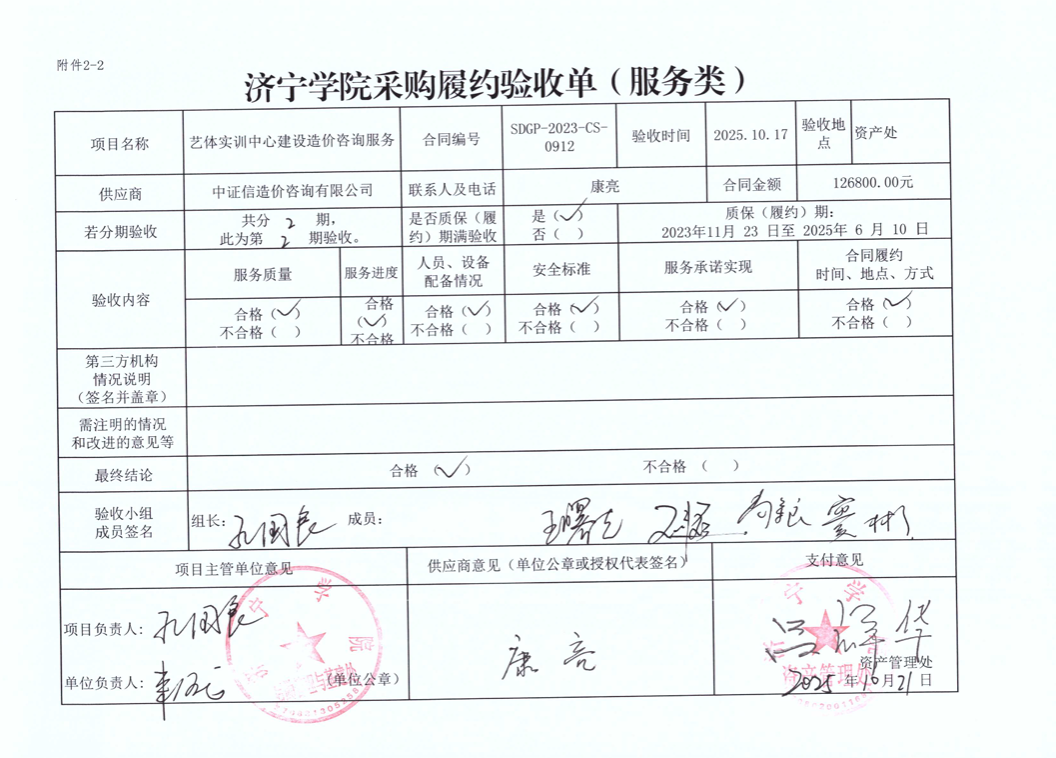 附件2-2
济宁学院采购履约验收单（服务类）
项目名称 艺体实训中心建设造价咨询服务 合同编号 SDGP-2023-CS-0912 验收时间 2025.10.17 验收地点 资产处
供应商 中证信造价咨询有限公司 联系人及电话 康亮 合同金额 126800.00元
若分期验收 共分 2 期， 此为第 2 期验收。 是否质保（履约）期满验收 是（✓） 否（ ） 质保（履约）期： 2023年11月 23 日至 2025年 6 月 10 日
验收内容 服务质量 服务进度 人员、设备配备情况 安全标准 服务承诺实现 合同履约时间、地点、方式
合格（✓） 合格（✓） 合格（✓） 合格（✓） 合格（✓） 合格（✓）
不合格（ ） 不合格 不合格（ ） 不合格（ ） 不合格（ ） 不合格（ ）
第三方机构
情况说明
（签名并盖章）
需注明的情况
和改进的意见等
最终结论 合格 （✓） 不合格 （ ）
验收小组
成员签名
组长： 孔国良 成员：
项目主管单位意见 供应商意见（单位公章或授权代表签名） 支付意见
项目负责人： 孔国良
康亮
单位负责人： （单位公章）
资产管理处
2025 年 10 月 21 日